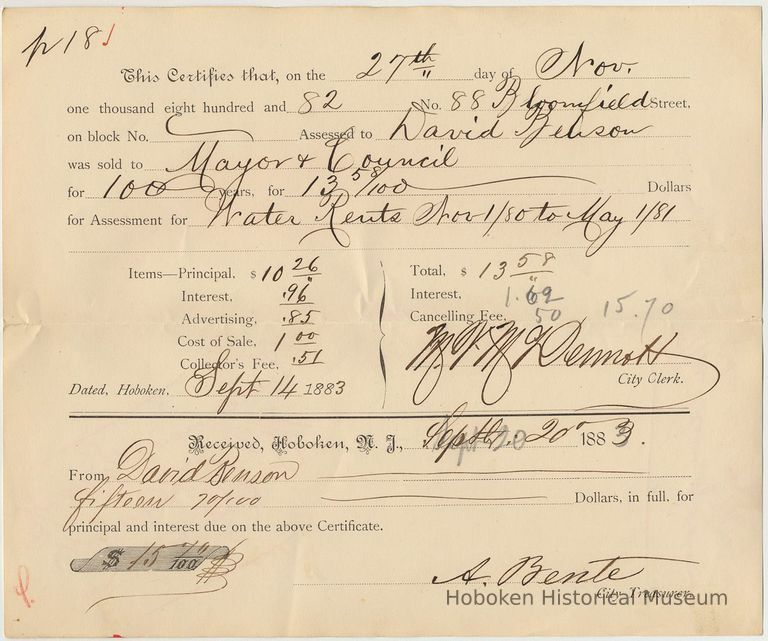 p 181
This Certifies that, on the 27th day of Nov.
one thousand eight hundred and 82 No. 88 Bloomfield Street,
on block No. Assessed to David Benson
was sold to Mayor & Council
for 100 years, for 13 58/100 Dollars
for Assessment for Water Rents Nov 1/80 to May 1/81
Items—Principal, $ 10 26
Interest, .96
Advertising, .85
Cost of Sale, 1 00
Collector's Fee, .51
Total, $ 13 58
Interest, 1.62
Cancelling Fee, 50 15.70
M. V. McDermott
City Clerk.
Dated, Hoboken, Sept 14 1883
Received, Hoboken, N. J., Septbr. 20 1883.
Sept 20
From David Benson
fifteen 70/100 Dollars, in full, for
principal and interest due on the above Certificate.
$ 15 70/100
A. Bente
City Treasurer.
Hoboken Historical Museum